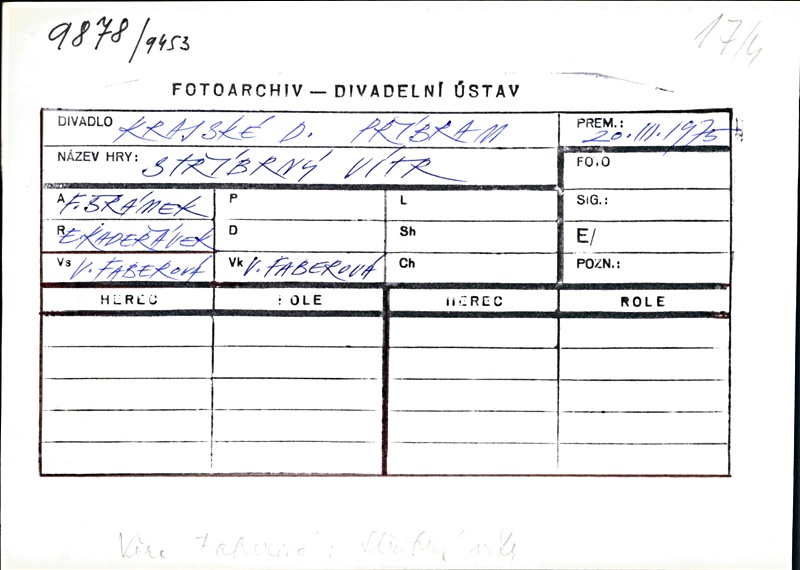 9878/9453
17/4
FOTOARCHIV — DIVADELNÍ ÚSTAV
DIVADLO KRAJSKÉ D. PŘÍBRAM
PREM.: 20.III.1975
NÁZEV HRY: STŘÍBRNÝ VÍTR
FOTO
A F. ŠRÁMEK P L SIG.:
R E. KADEŘÁVEK D Sh E/
Vs V. FABEROVÁ Vk V. FABEROVÁ Ch POZN.:
HEREC ROLE HEREC ROLE
Faberová: Stříbrný vítr